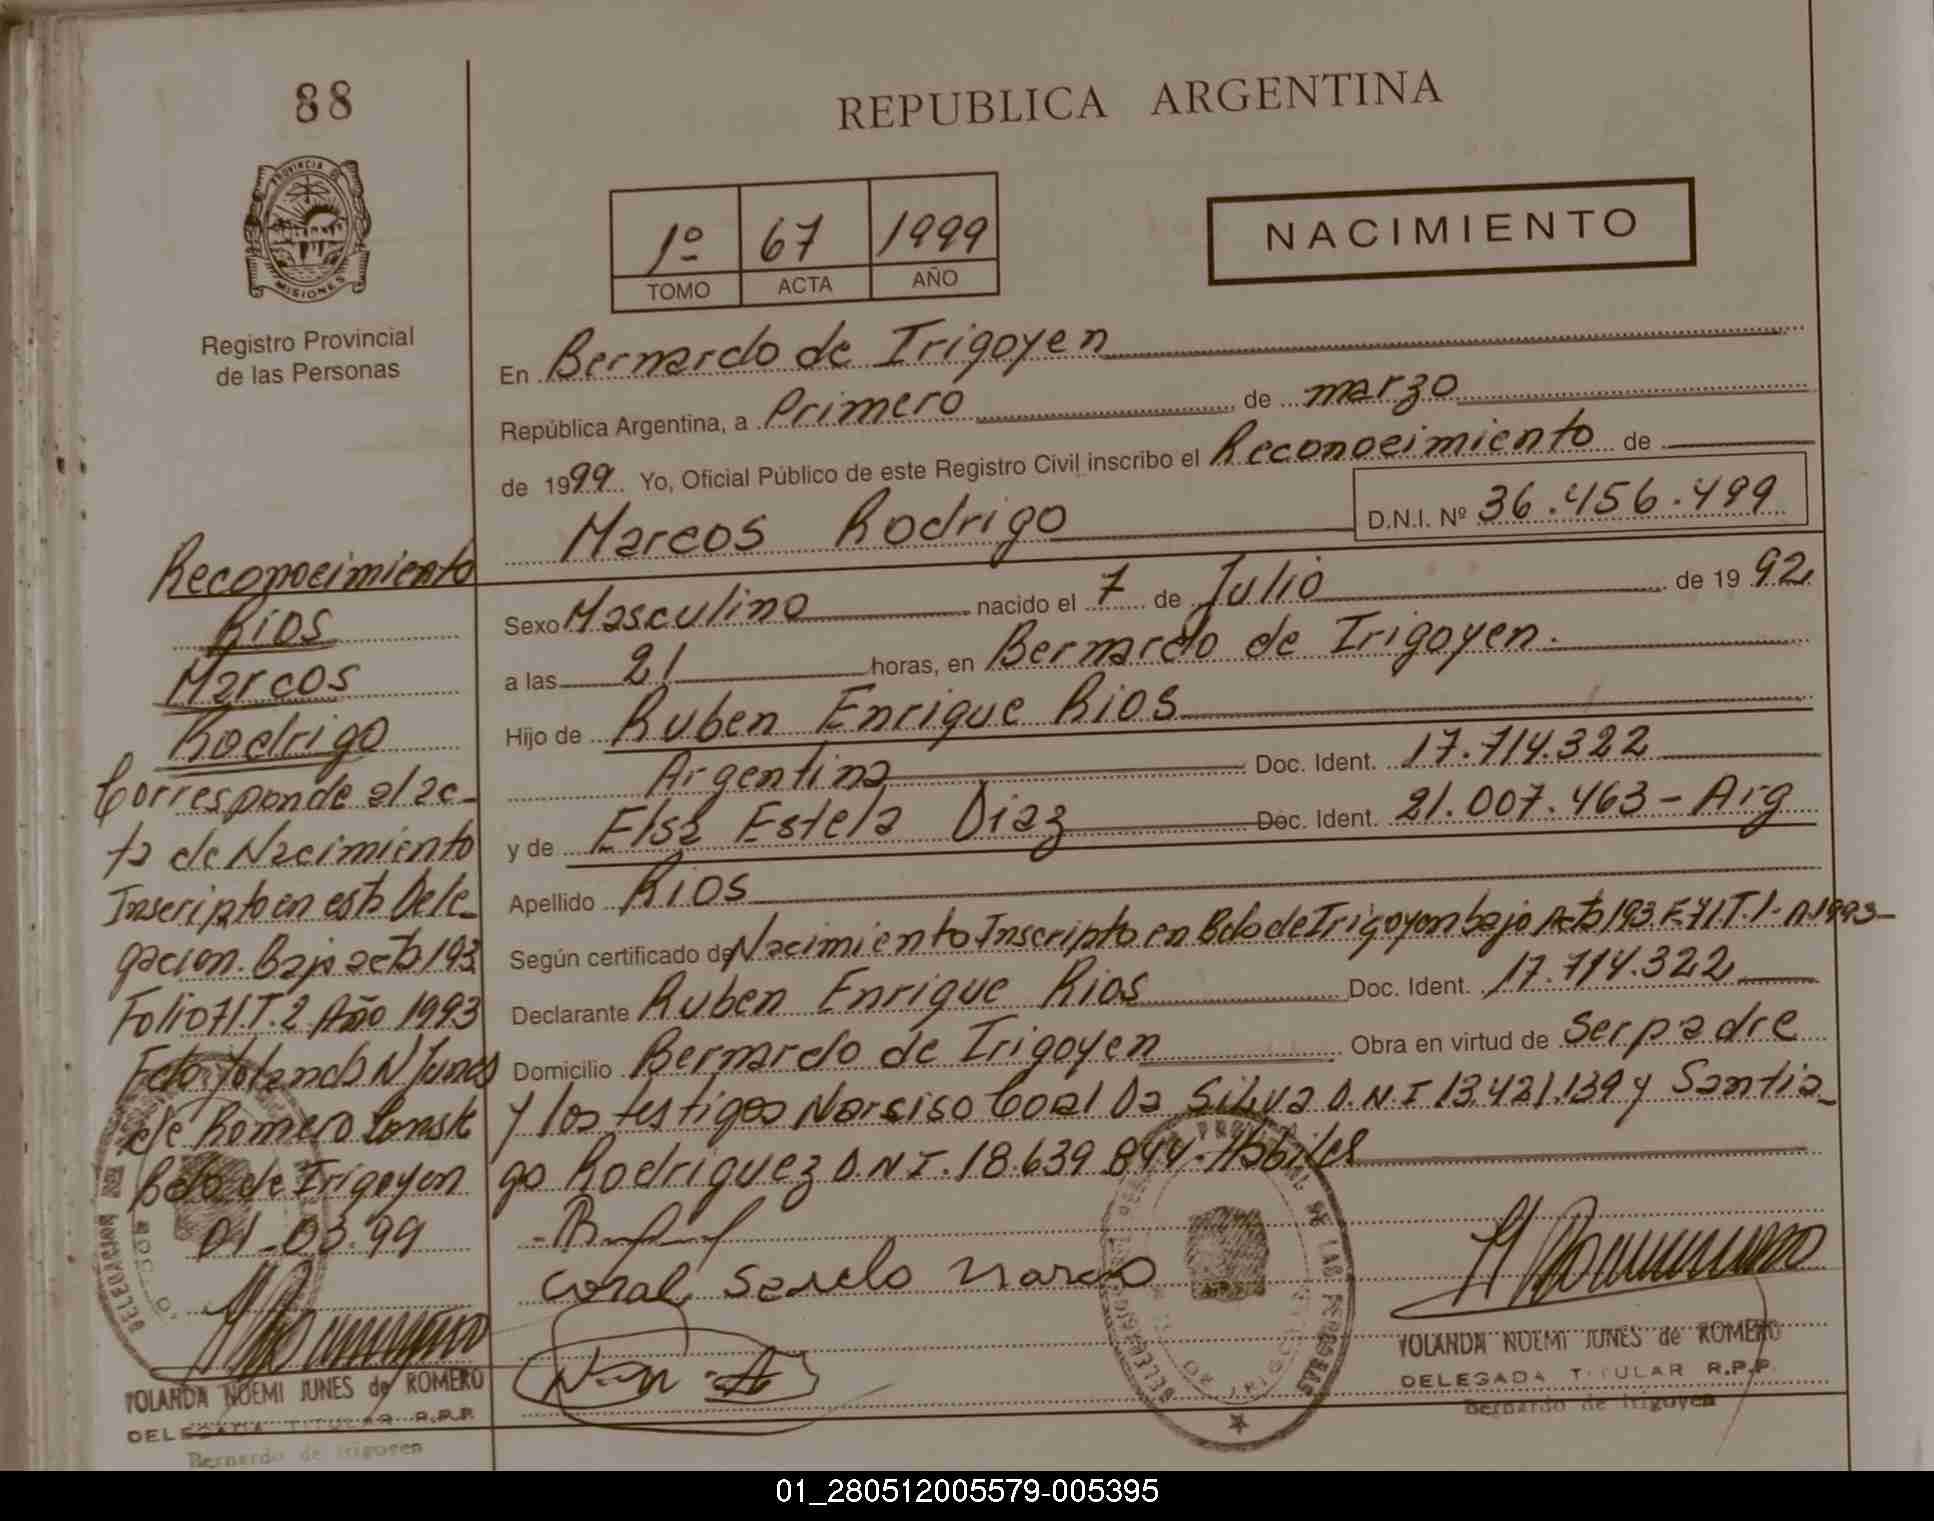 88
REPUBLICA ARGENTINA
PROVINCIA
MISIONES
Registro Provincial
de las Personas
1º 67 1999
TOMO ACTA AÑO
NACIMIENTO
En Bernardo de Irigoyen
República Argentina, a Primero de marzo
de 1999 Yo, Oficial Público de este Registro Civil inscribo el Reconocimiento de
Marcos Rodrigo D.N.I. Nº 36.456.499
Sexo Masculino nacido el 7 de Julio de 1992
a las 21 horas, en Bernardo de Irigoyen.
Hijo de Ruben Enrique Rios
Argentina Doc. Ident. 17.714.322
y de Elsa Estela Diaz Doc. Ident. 21.007.463 - Arg
Apellido Rios
Según certificado de Nacimiento Inscripto en Bdo de Irigoyen bajo Acta 193 F.71 T.1- A.1993-
Declarante Ruben Enrique Rios Doc. Ident. 17.714.322
Domicilio Bernardo de Irigoyen Obra en virtud de ser padre
y los testigos Narsiso Coal Da Silva D.N.I 13.421.139 y Santia-
go Rodriguez D.N.I. 18.639.844. Habiles
Reconocimiento
Rios
Marcos
Rodrigo
Corresponde al ac-
ta de Nacimiento
Inscripto en esta Dele-
gacion. Bajo acta 193
Folio 71 T.2 Año 1993
Fdo Yolanda N Junes
de Romero Const
Bdo de Irigoyen
01-03-99
YOLANDA NOEMI JUNES de ROMERO
DELEGADA TITULAR R.P.P.
Bernardo de Irigoyen
YOLANDA NOEMI JUNES de ROMERO
DELEGADA TITULAR R.P.P.
Bernardo de Irigoyen
01_280512005579-005395